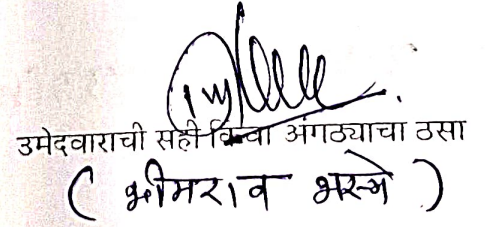 उमेदवाराची सही किंवा अंगठ्याचा ठसा
( भीमराव भरत्ने )